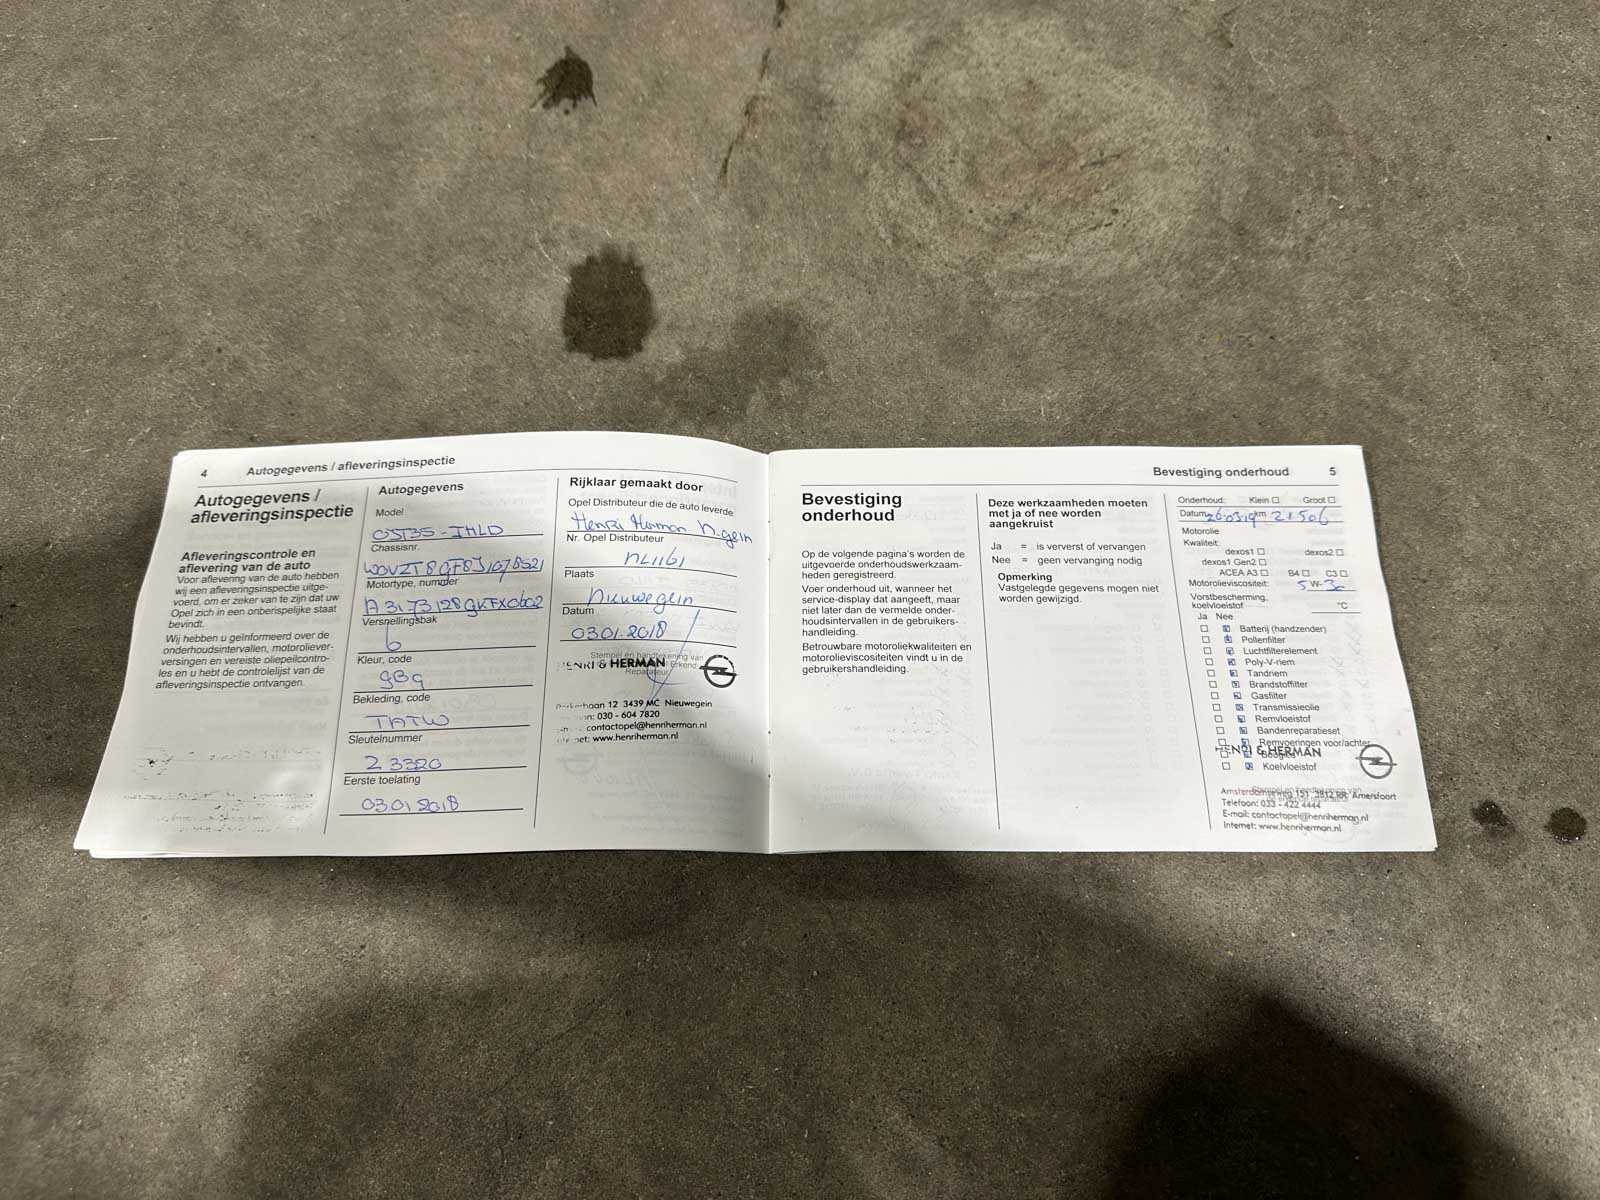 4 Autogegevens / afleveringsinspectie
Autogegevens /
afleveringsinspectie
Afleveringscontrole en
aflevering van de auto
Voor aflevering van de auto hebben
wij een afleveringsinspectie uitge-
voerd, om er zeker van te zijn dat uw
Opel zich in een onberispelijke staat
bevindt.
Wij hebben u geïnformeerd over de
onderhoudsintervallen, motoroliever-
versingen en vereiste oliepeilcontro-
les en u hebt de controlelijst van de
afleveringsinspectie ontvangen.
Autogegevens
Model
Chassisnr.
Motortype, nummer
Versnellingsbak
6
Kleur, code
Bekleding, code
Sleutelnummer
Z 3320
Eerste toelating
03012018
Rijklaar gemaakt door
Opel Distributeur die de auto leverde
Henri Herman N.gein
Nr. Opel Distributeur
NL1161
Plaats
Nieuwegein
Datum
0301.2018
Stempel en handtekening van
Erkend
Reparateur
HENRI & HERMAN
12 3439 MC Nieuwegein
030 - 604 7820
contactopel@henriherman.nl
www.henriherman.nl
Bevestiging onderhoud 5
Bevestiging
onderhoud
Op de volgende pagina's worden de
uitgevoerde onderhoudswerkzaam-
heden geregistreerd.
Voer onderhoud uit, wanneer het
service-display dat aangeeft, maar
niet later dan de vermelde onder-
houdsintervallen in de gebruikers-
handleiding.
Betrouwbare motoroliekwaliteiten en
motorolieviscositeiten vindt u in de
gebruikershandleiding.
Deze werkzaamheden moeten
met ja of nee worden
aangekruist
Ja = is ververst of vervangen
Nee = geen vervanging nodig
Opmerking
Vastgelegde gegevens mogen niet
worden gewijzigd.
Onderhoud: Klein Groot
Datum 26.03.19 km 21.506
Motorolie
Kwaliteit:
dexos1 dexos2
dexos1 Gen2
ACEA A3 B4 C3
Motorolieviscositeit: 5 W-30
Vorstbescherming,
koelvloeistof °C
Ja Nee
Batterij (handzender)
Pollenfilter
Luchtfilterelement
Poly-V-riem
Tandriem
Brandstoffilter
Gasfilter
Transmissieolie
Remvloeistof
Bandenreparatieset
Remvoeringen voor/achter
Bougies
Koelvloeistof
HENRI & HERMAN
Amsterdamseweg 151 3812 RR Amersfoort
Telefoon: 033 - 422 4444
E-mail: contactopel@henriherman.nl
Internet: www.henriherman.nl